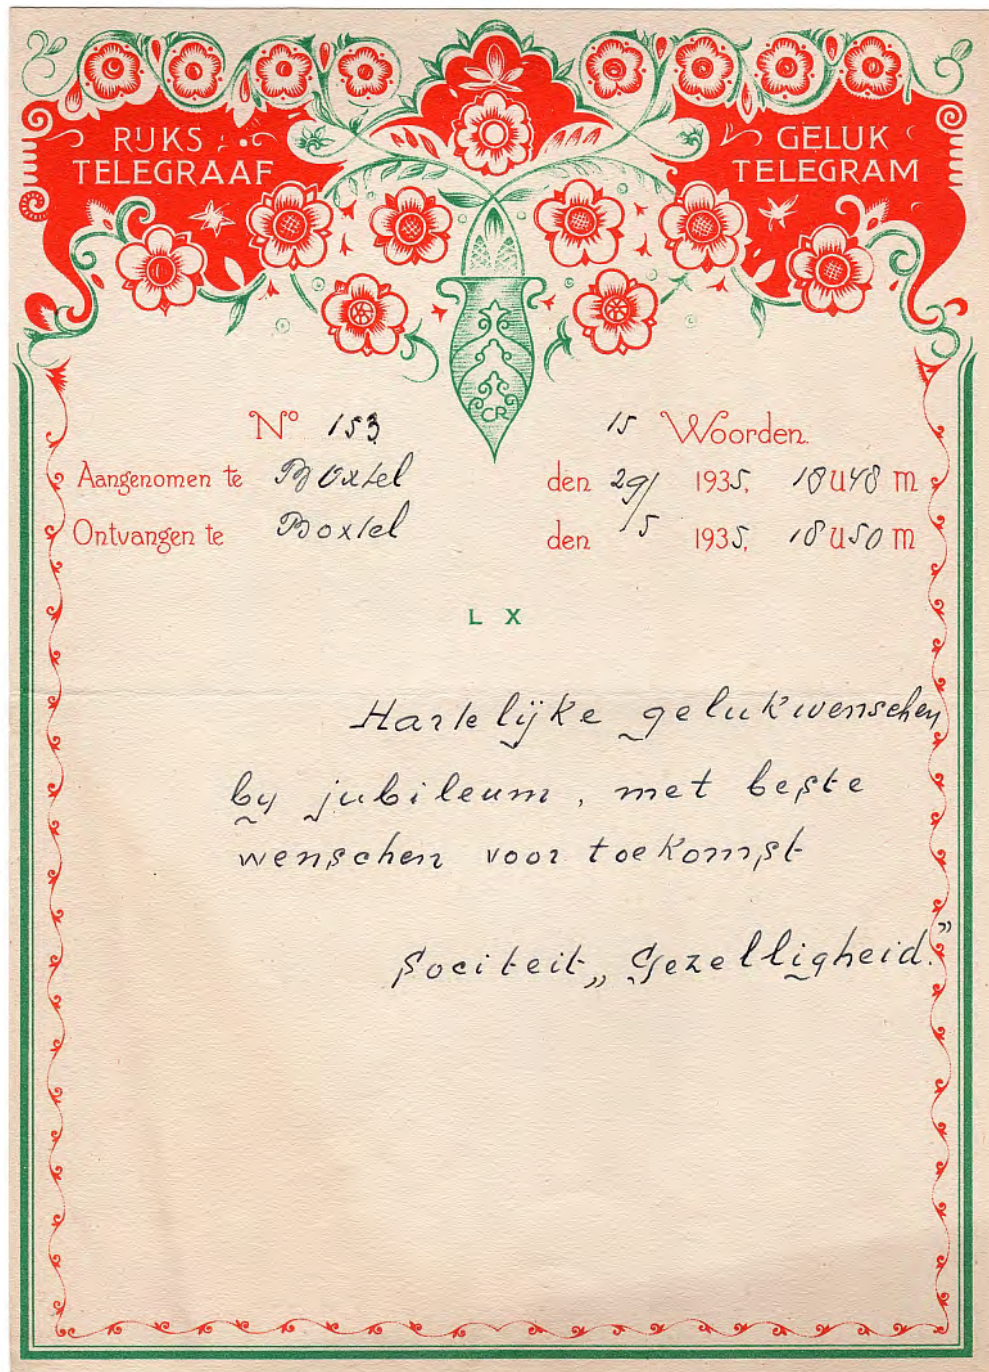 RIJKS
TELEGRAAF
GELUK
TELEGRAM
CR
No 153 15 Woorden.
Aangenomen te Boxtel den 29/ 1935, 18 U 48 M
Ontvangen te Boxtel den /5 1935, 18 U 50 M
L X
Hartelijke gelukwenschen
by jubileum, met beste
wenschen voor toekomst
Sociteit „Gezelligheid."